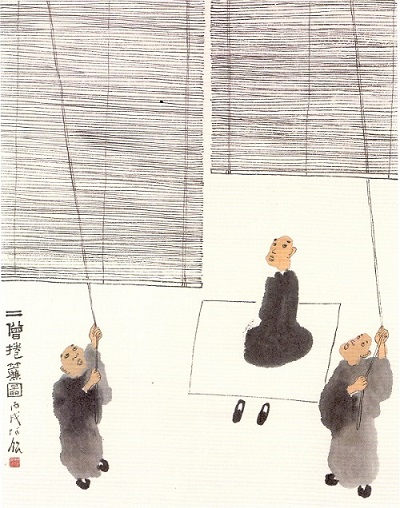 二僧捲簾圖 丙戌